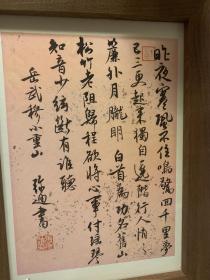 昨夜寒不住鳴驚回千里夢
已三更起來獨自遶階行人悄
簾外月朧明 白首為功名舊山
松竹老阻歸程欲將心事付瑤琴
知音少絃斷有誰聽
岳武穆小重山
書